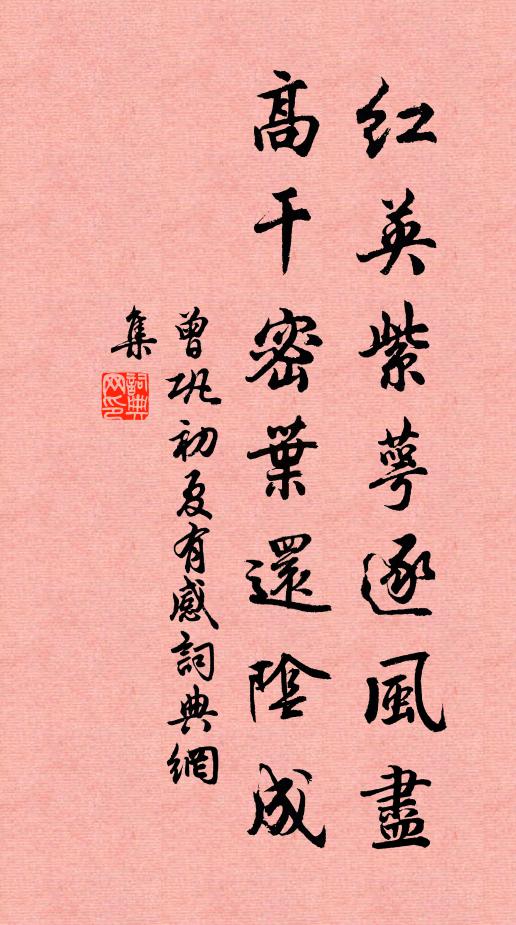 红英紫萼逐風盡
高干密葉還陰成
曾巩初夏有感詞典網
集
詞典网印